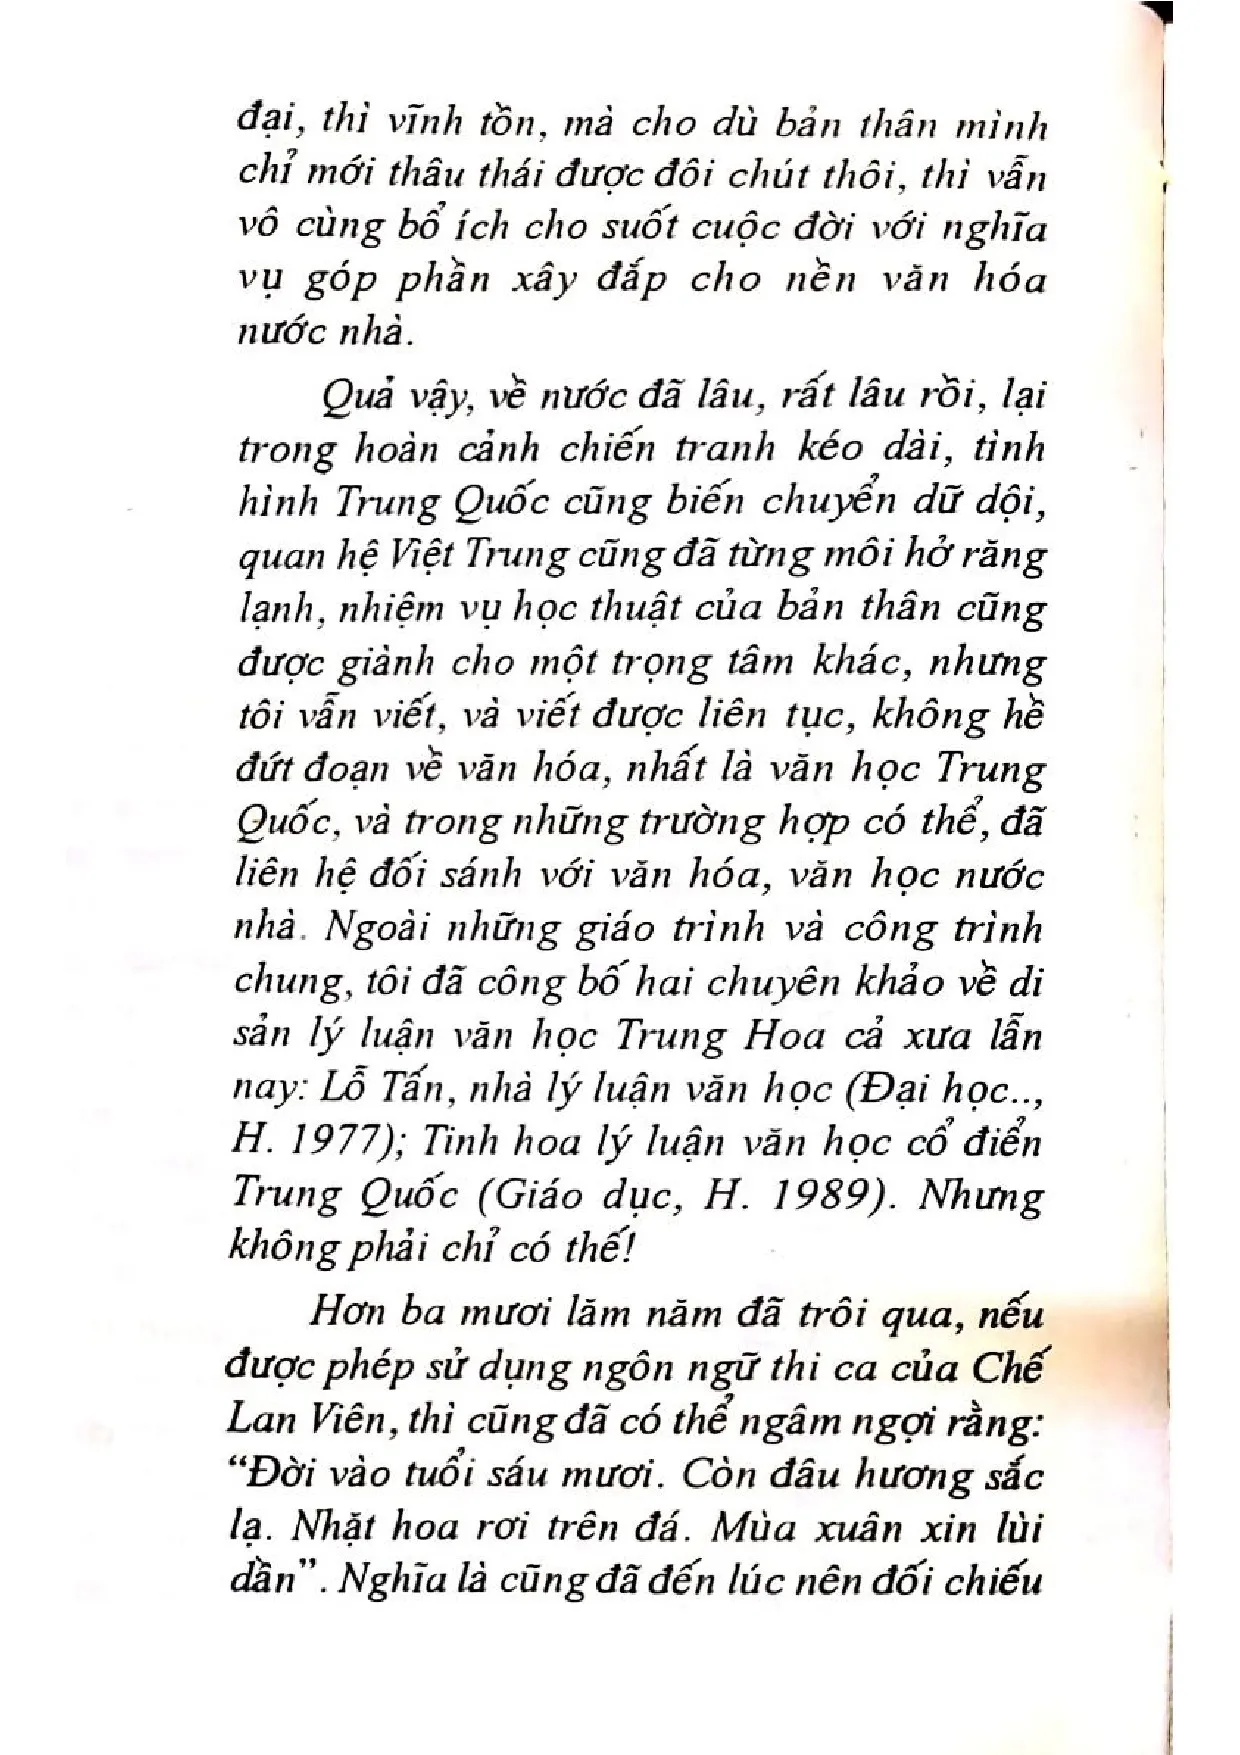 đại, thì vĩnh tồn, mà cho dù bản thân mình
chỉ mới thâu thái được đôi chút thôi, thì vẫn
vô cùng bổ ích cho suốt cuộc đời với nghĩa
vụ góp phần xây đắp cho nền văn hóa
nước nhà.
Quả vậy, về nước đã lâu, rất lâu rồi, lại
trong hoàn cảnh chiến tranh kéo dài, tình
hình Trung Quốc cũng biến chuyển dữ dội,
quan hệ Việt Trung cũng đã từng môi hở răng
lạnh, nhiệm vụ học thuật của bản thân cũng
được giành cho một trọng tâm khác, nhưng
tôi vẫn viết, và viết được liên tục, không hề
đứt đoạn về văn hóa, nhất là văn học Trung
Quốc, và trong những trường hợp có thể, đã
liên hệ đối sánh với văn hóa, văn học nước
nhà. Ngoài những giáo trình và công trình
chung, tôi đã công bố hai chuyên khảo về di
sản lý luận văn học Trung Hoa cả xưa lẫn
nay: Lỗ Tấn, nhà lý luận văn học (Đại học..,
H. 1977); Tinh hoa lý luận văn học cổ điển
Trung Quốc (Giáo dục, H. 1989). Nhưng
không phải chỉ có thế!
Hơn ba mươi lăm năm đã trôi qua, nếu
được phép sử dụng ngôn ngữ thi ca của Chế
Lan Viên, thì cũng đã có thể ngâm ngợi rằng:
“Đời vào tuổi sáu mươi. Còn đâu hương sắc
lạ. Nhặt hoa rơi trên đá. Mùa xuân xin lùi
dần”. Nghĩa là cũng đã đến lúc nên đối chiếu